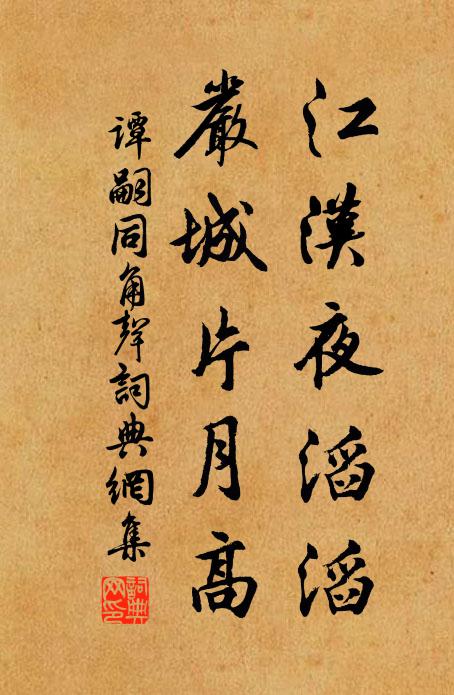 江漢夜滔滔
嚴城片月高
譚嗣同角聲詞典網集
詞典網印